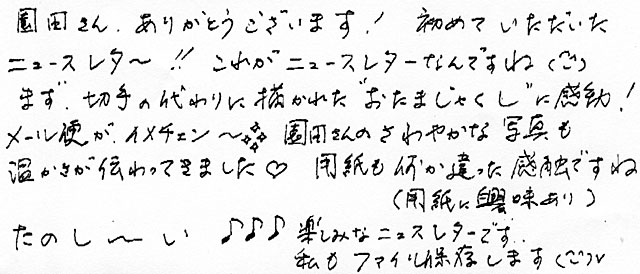 園田さん、ありがとうございます! 初めていただいた
ニュースレター!! これがニュースレターなんですね(^^)
まず、切手の代わりに描かれた"おたまじゃくし"に感動!
メール便が、イメチェン〜 園田さんのさわやかな写真も
温かさが伝わってきました♡ 用紙も何か違った感触ですね
(用紙に興味あり)
たのし〜い ♪♪♪ 楽しみなニュースレターです。
私もファイル保存します(^^)v